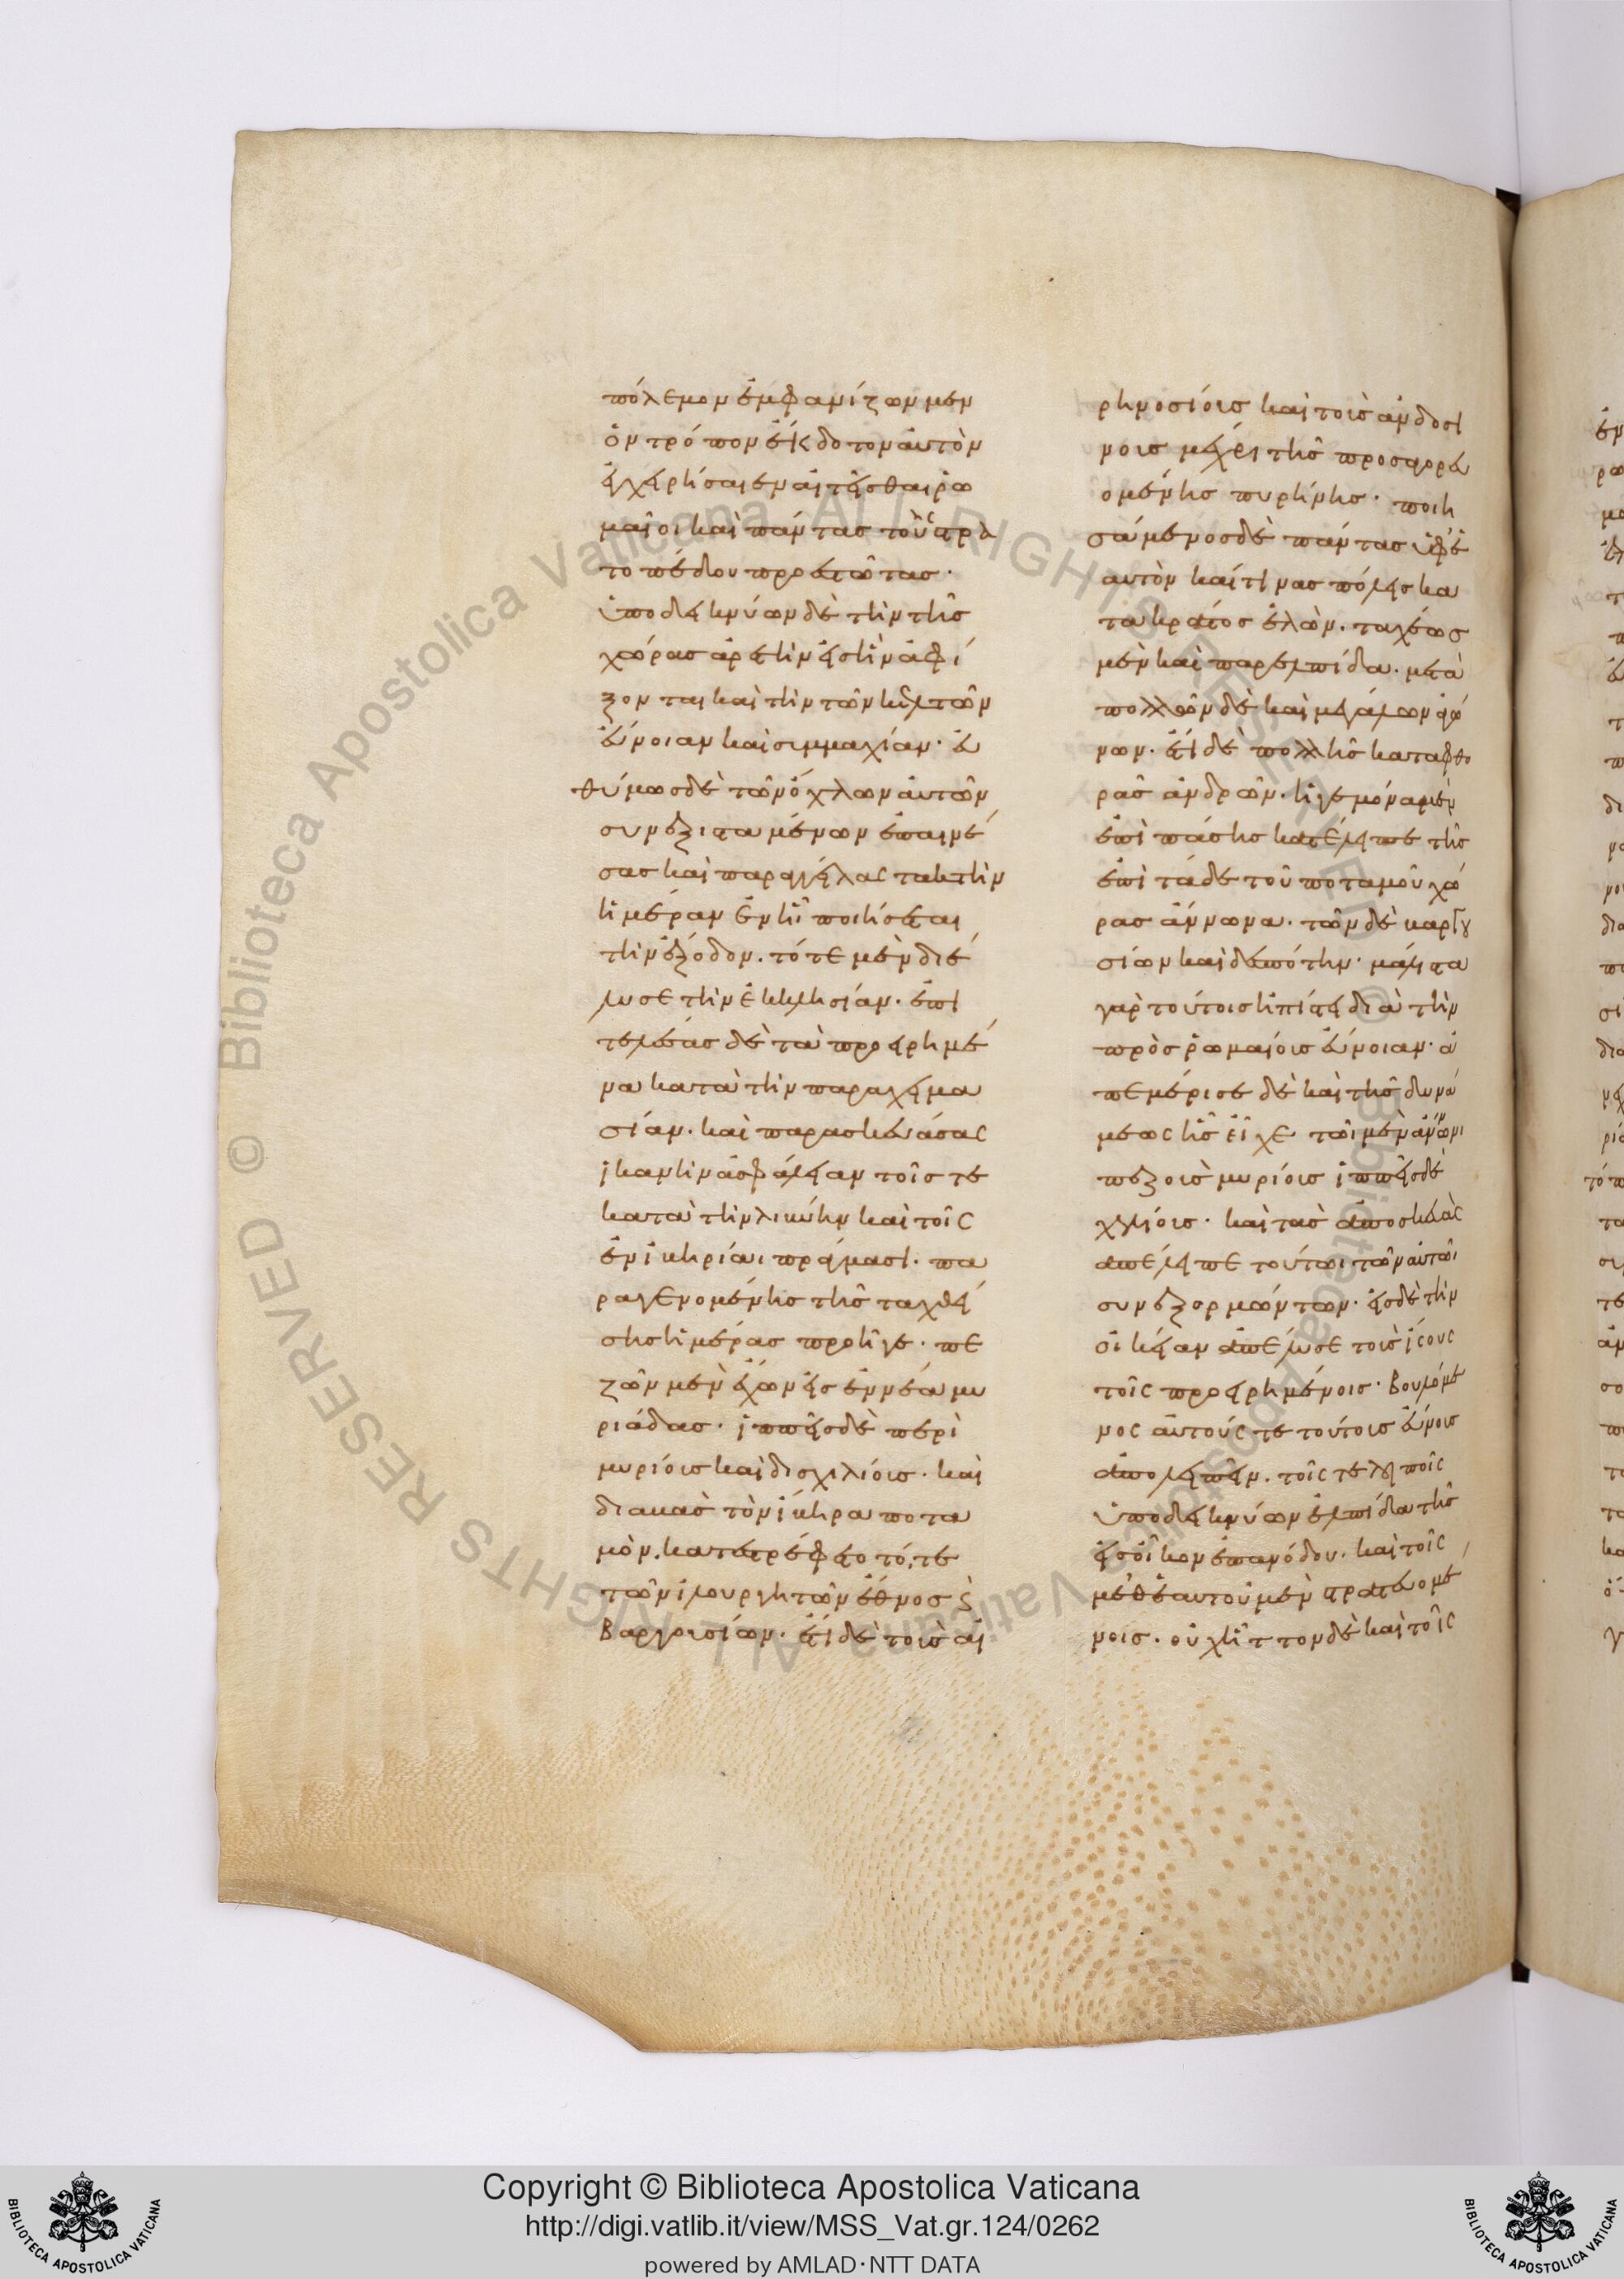 πόλεμον ἐμφανίζων μὲν
ὃν τρόπον ἔκδοτον αὐτὸν
ἐγχειρήσαιεν αἰτεῖσθαι ῥω
μαῖοι καὶ πάντας τοὺς στρα
το πέδου προεστῶτας·
ὑποδεικνύων δὲ τὴν τῆς
χώρας ἀρετὴν εἰς ἣν ἀφί
ξονται καὶ τὴν τῶν κελτῶν
εὔνοιαν καὶ συμμαχίαν· εὐ
θύμως δὲ τῶν ὄχλων αὐτῶν
συνεξισταμένων ἐπαινέ
σας καὶ παραγγείλας τακτὴν
ἡμέραν ἐν ᾗ ποιήσεται
τὴν ἔξοδον. τότε μὲν διέ
λυσε τὴν ἐκκλησίαν. ἐπι
τελέσας δὲ τὰ προειρημέ
να κατὰ τὴν παραχειμα
σίαν. καὶ παρασκευάσας
ἱκανὴν ἀσφάλειαν τοῖς τε
κατὰ τὴν λιβύην καὶ τοῖς
ἐν ἰβηρίαι πράγμασι. πα
ραγενομένης τῆς ταχθεί
σης ἡμέρας προῆγε. πε
ζῶν μὲν ἔχων εἰς ἐννέα μυ
ριάδας. ἱππεῖς δὲ περὶ
μυρίοις καὶ δισχιλίοις. καὶ
διαβὰς τὸν ἴβηρα ποτα
μὸν. κατεστρέφετο τό. τε
τῶν ἰλουργητῶν ἔθνος ϗ
βαργουσίων. ἔτι δὲ τοὺς αἰ
ρηνοσίοις καὶ τοὺς ἀνδοσί
νοις μέχρι τῆς προσαγορευ
ομένης πυρήνης. ποιη
σάμενος δὲ πάντας ὑφ' ἑ
αυτὸν καί τινας πόλεις κα
τὰ κράτος ἑλὼν. ταχέως
μὲν καὶ παρ' ἐλπίδα. μετὰ
πολλῶν δὲ καὶ μεγάλων ἀγώ
νων. ἔτι δὲ πολλῆς καταφθο
ρᾶς ἀνδρῶν. ἡγεμόνα μὲν
ἐπὶ πάσης κατέλειπε τῆς
ἐπὶ τάδε τοῦ ποταμοῦ χώ
ρας ἄννωνα. τῶν δὲ βαργου
σίων καὶ δεσπότην. μάλιστα
γὰρ τούτοις ἠπίστει διὰ τὴν
πρὸς ῥωμαίοις εὔνοιαν. ἀ
πεμέρισε δὲ καὶ τῆς δυνά
μεως ἧς εἶχε τῶι μὲν ἄννωνι
πεζοὺς μυρίοις ἱππεῖς δὲ
χιλίοις. καὶ τὰς ἀποσκευὰς
ἀπέλειπε τούτωι τῶν αὐτῶι
συνεξορμώντων. εἰς δὲ τὴν
οἰκείαν ἀπέλυσε τοὺς ἴσους
τοῖς προειρημένοις. βουλόμε
νος αὐτούς τε τούτοις εὔνοις
ἀπολείπειν. τοῖς τε λοιποῖς
ὑποδεικνύων ἐλπίδα τῆς
εἰς οἶκον ἐπανόδου. καὶ τοῖς
μεθ' ἑαυτοῦ μὲν στρατευομέ
νοις. οὐχ ἧττον δὲ καὶ τοῖς
Copyright © Biblioteca Apostolica Vaticana
http://digi.vatlib.it/view/MSS_Vat.gr.124/0262
powered by AMLAD·NTT DATA